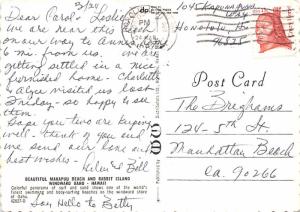 3/24
Dear Carol + Leslie
We are near this beach
on our way to Annie's
6 mi from us. we are
getting settled in a nice
furnished home - Charlotte
& Alger visited us last
Friday - so happy to see
them.
Hope you two are keeping
well - think of you and
we send our love and
best wishes.
Bell
BEAUTIFUL MAKAPUU BEACH AND RABBIT ISLAND
WINDWARD OAHU - HAWAII
Colorful panorama of surf and sand shows one of the world's
finest swimming and body-surfing beaches on the windward shore
of Oahu.
Say Hello to Betty
PM
1045
Way
Honolulu, Hi
96825
Post Card
The
124-5th St.
Manhattan Beach
Ca. 90266